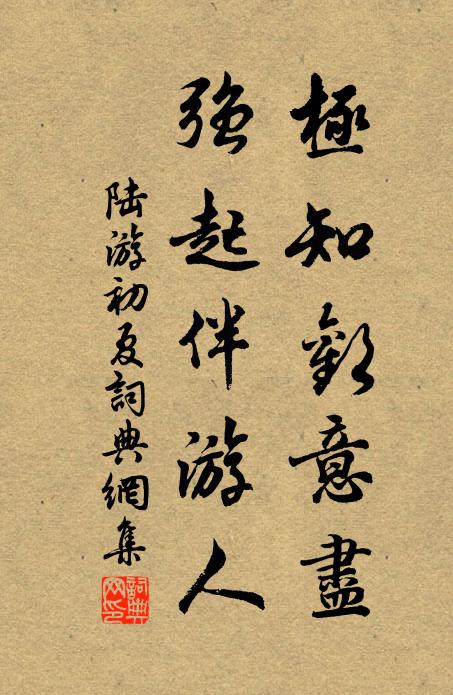 極知歡意盡
強起伴游人
陸游初夏詞典網集
詞典網印